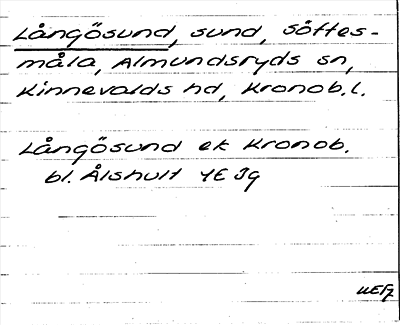 Långösund, sund, Söftes-
måla, Almundsryds sn,
Kinnevalds hd, Kronob.l.
Långösund ek Kronob.
bl. Ålshult 4E Jg